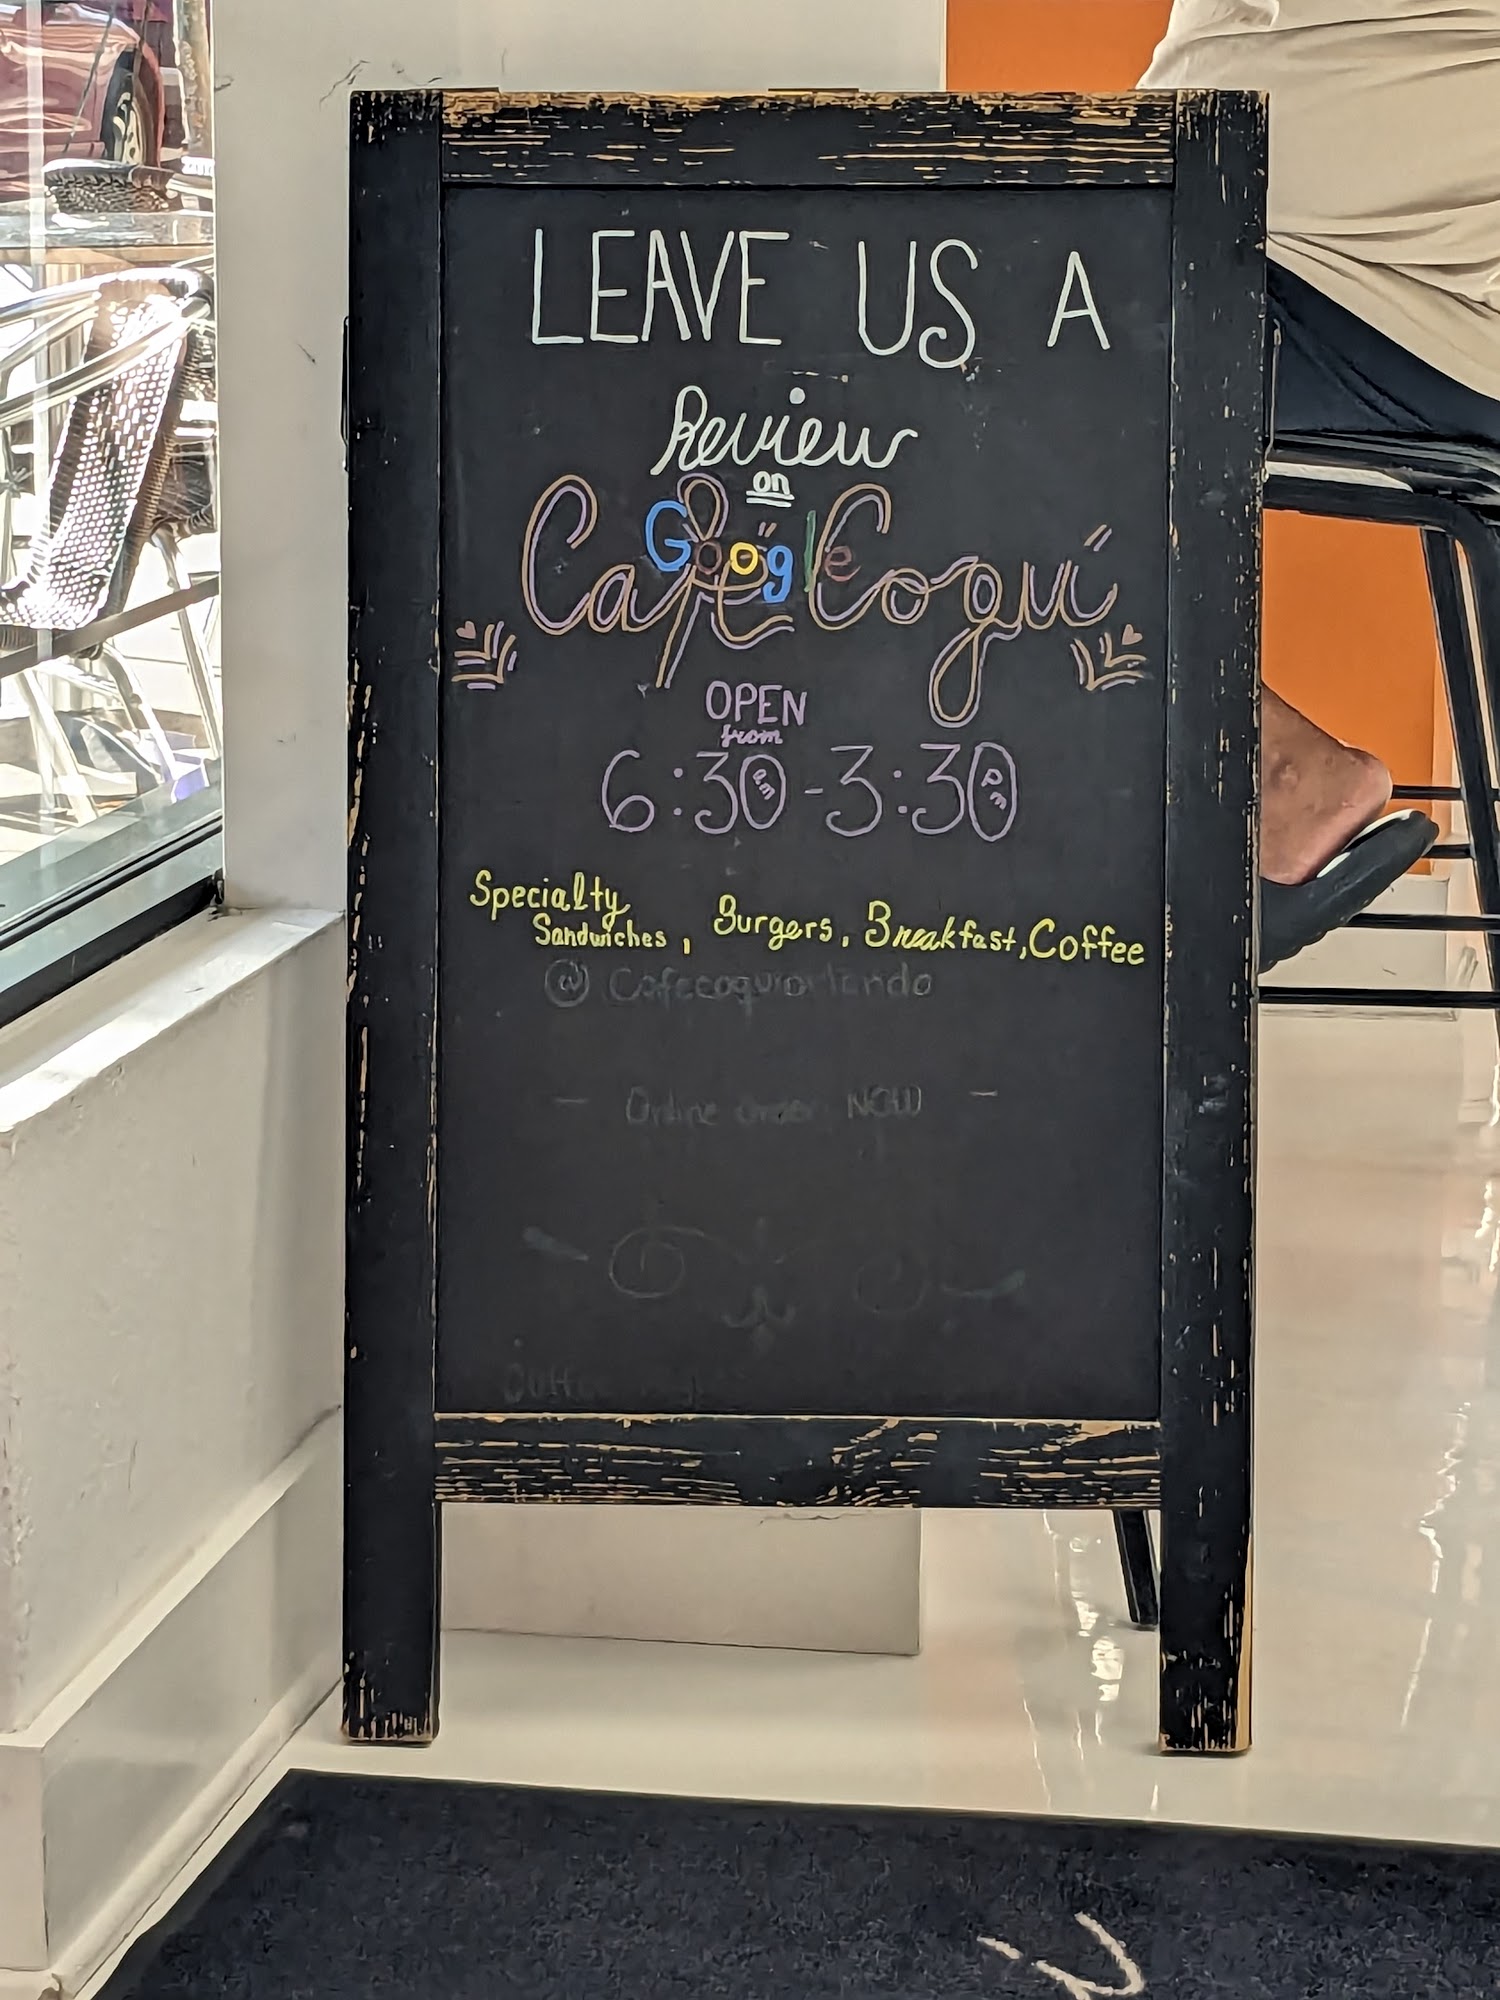 LEAVE US A
Review
on
Google
Café Coquí
OPEN
from
6:30 am - 3:30 pm
Specialty
Sandwiches, Burgers, Breakfast, Coffee
@ Cafecoquiorlando
- Online order NOW -